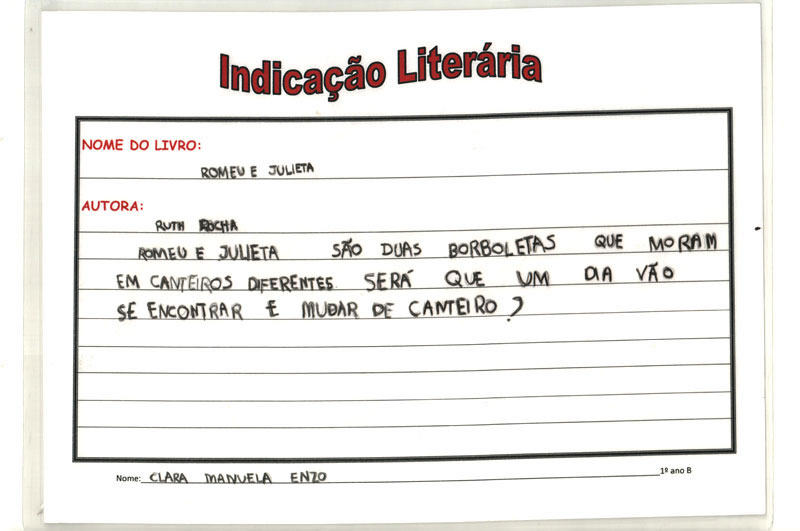 Indicação Literária
NOME DO LIVRO:
ROMEU E JULIETA
AUTORA:
RUTH ROCHA
ROMEU E JULIETA SÃO DUAS BORBOLETAS QUE MORAM
EM CANTEIROS DIFERENTES. SERÁ QUE UM DIA VÃO
SE ENCONTRAR E MUDAR DE CANTEIRO?
Nome: CLARA MANUELA ENZO 1º ano B